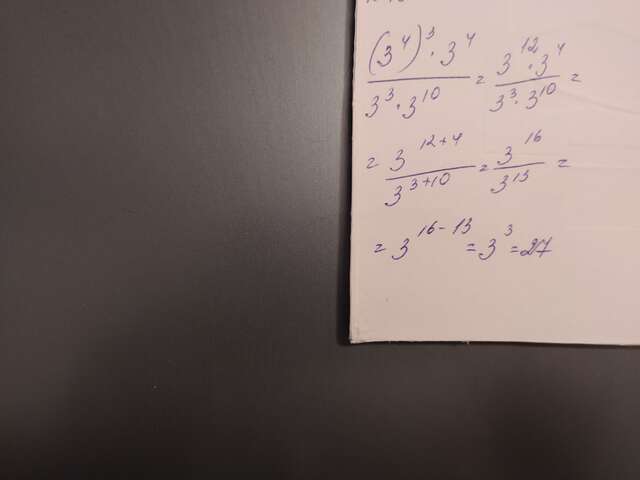 (3⁴)³ · 3⁴ / 3³ · 3¹⁰ = 3¹² · 3⁴ / 3³ · 3¹⁰ =
= 3¹²⁺⁴ / 3³⁺¹⁰ = 3¹⁶ / 3¹³ =
= 3¹⁶⁻¹³ = 3³ = 27